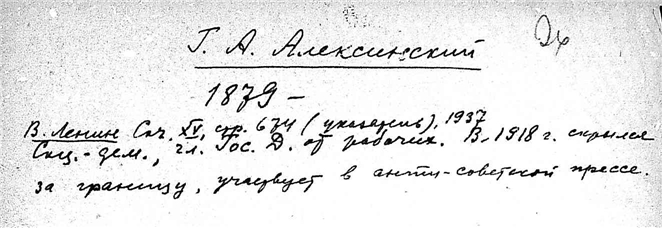 Г. А. Алексинский
26
1879 –
В. Ленин Соч. XV, стр. 674 (указатель), 1937
Соц.-дем., чл. Гос. Д. от рабочих. В 1918 г. скрылся
за границу, участвует в анти-советской прессе.